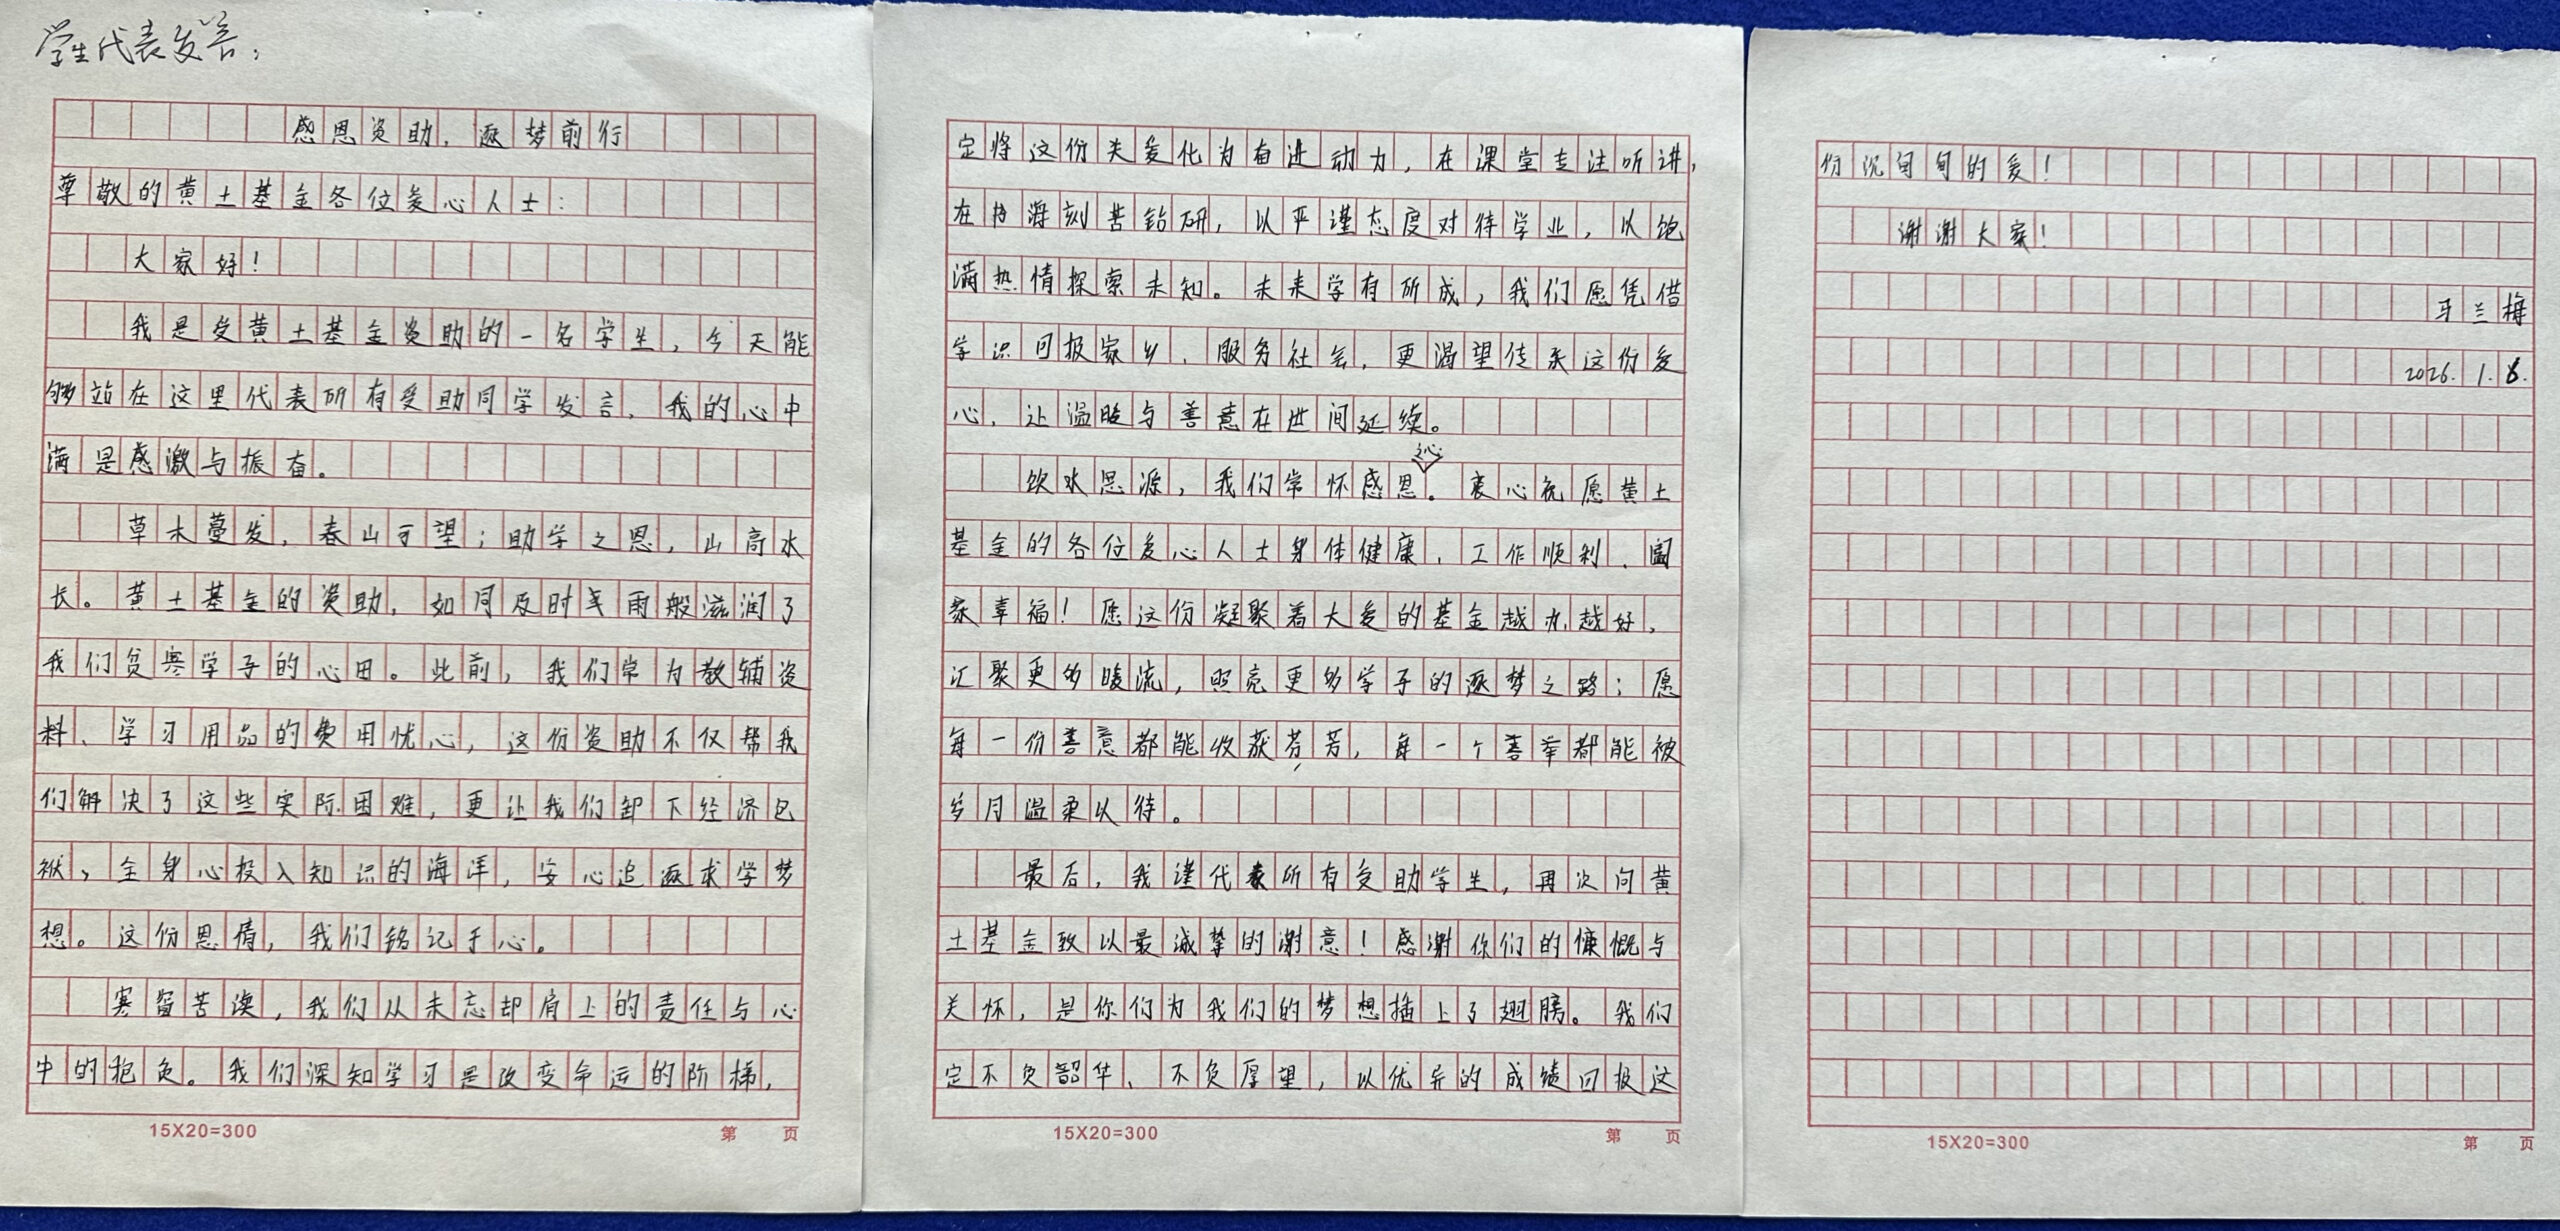 学生代表发言：
感恩资助，逐梦前行
尊敬的黄土基金各位爱心人士：
大家好！
我是受黄土基金资助的一名学生，今天能
够站在这里代表所有受助同学发言，我的心中
满是感激与振奋。
草木蔓发，春山可望；助学之恩，山高水
长。黄土基金的资助，如同及时雨般滋润了
我们贫寒学子的心田。此前，我们常为教辅资
料、学习用品的费用忧心，这份资助不仅帮我
们解决了这些实际困难，更让我们卸下经济包
袱，全身心投入知识的海洋，安心追逐求学梦
想。这份恩情，我们铭记于心。
寒窗苦读，我们从未忘却肩上的责任与心
中的抱负。我们深知学习是改变命运的阶梯，
15X20=300
第 页
定将这份关爱化为奋进动力，在课堂专注听讲，
在书海刻苦钻研，以严谨态度对待学业，以饱
满热情探索未知。未来学有所成，我们愿凭借
学识回报家乡、服务社会，更渴望传承这份爱
心，让温暖与善意在世间延续。
饮水思源，我们常怀感恩之心。衷心祝愿黄土
基金的各位爱心人士身体健康、工作顺利、阖
家幸福！愿这份凝聚着大爱的基金越办越好，
汇聚更多暖流，照亮更多学子的逐梦之路；愿
每一份善意都能收获芬芳，每一个善举都能被
岁月温柔以待。
最后，我谨代表所有受助学生，再次向黄
土基金致以最诚挚的谢意！感谢你们的慷慨与
关怀，是你们为我们的梦想插上了翅膀。我们
定不负韶华、不负厚望，以优异的成绩回报这
15X20=300
第 页
份沉甸甸的爱！
谢谢大家！
马兰梅
2026.1.8.
15X20=300
第 页